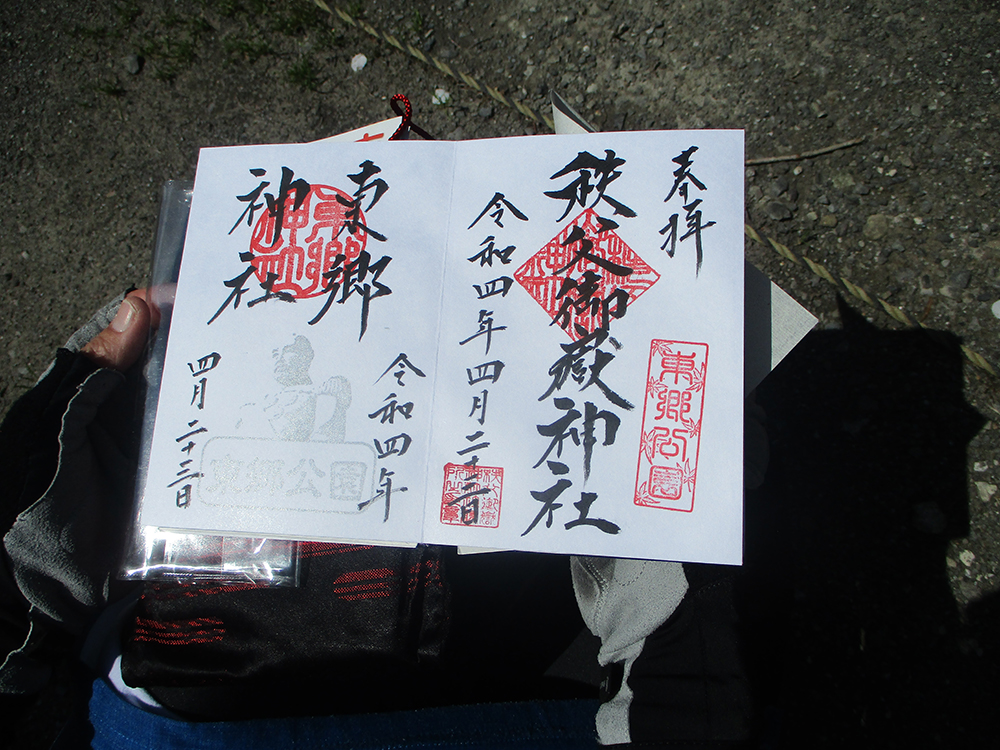 奉拝
秩父御嶽神社
令和四年四月二十三日
東郷公園
東郷
神社
令和四年
四月二十三日
東郷公園